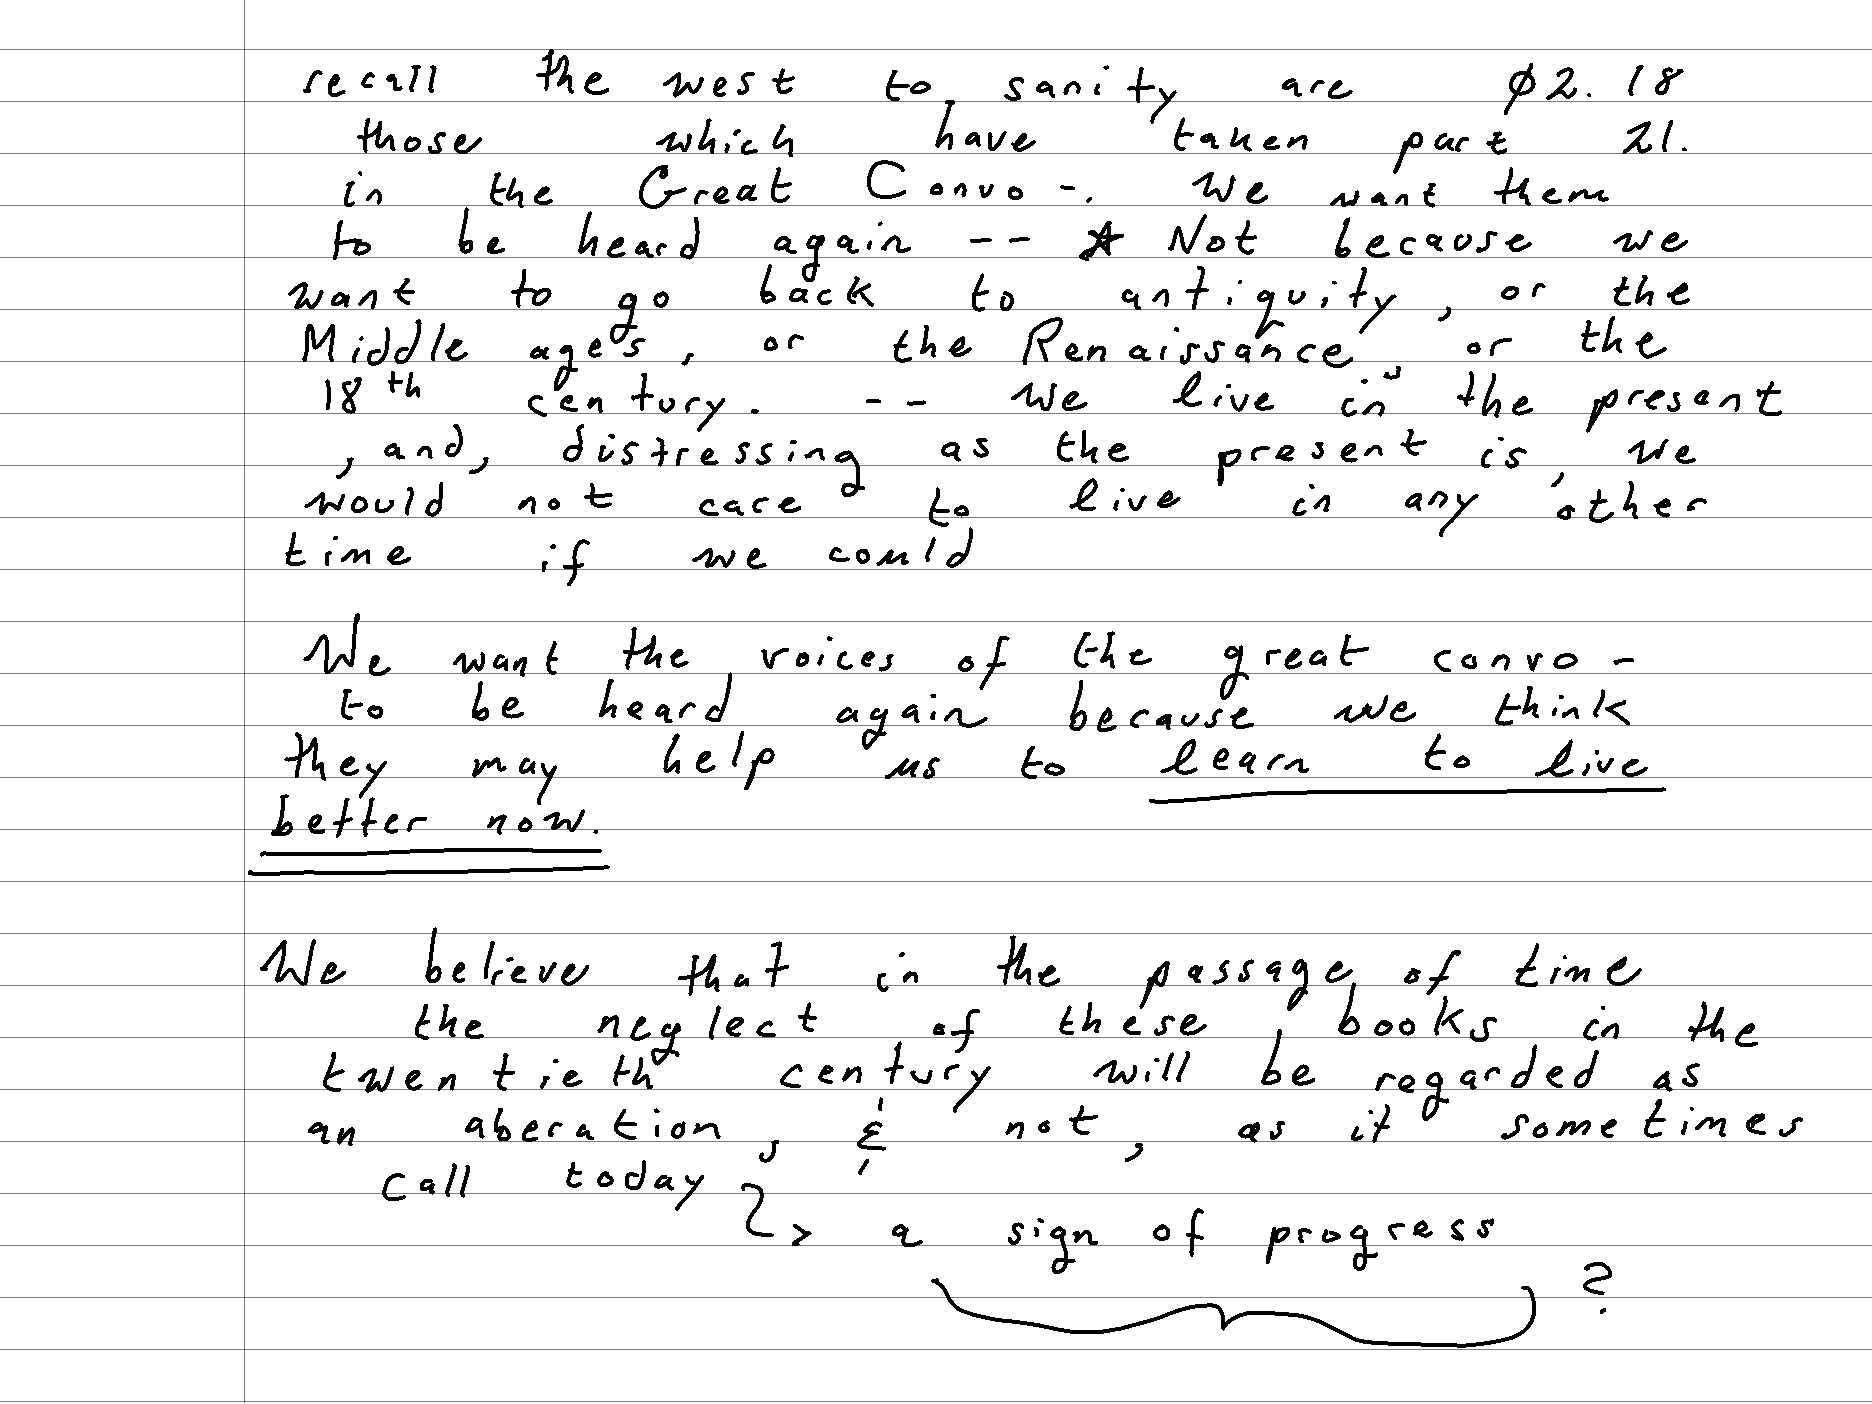 recall the west to sanity are 02.18
those which have taken part 21.
in the Great Convo -. We want them
to be heard again -- ☆ Not because we
want to go back to antiquity, or the
Middle ages, or the Renaissance, or the
18th century. -- We live in the present
, and, distressing as the present is, we
would not care to live in any other
time if we could
We want the voices of the great convo -
to be heard again because we think
they may help us to learn to live
better now.
We believe that in the passage of time
the neglect of these books in the
twentieth century will be regarded as
an aberation, & not, as it sometimes
call today
a sign of progress
?